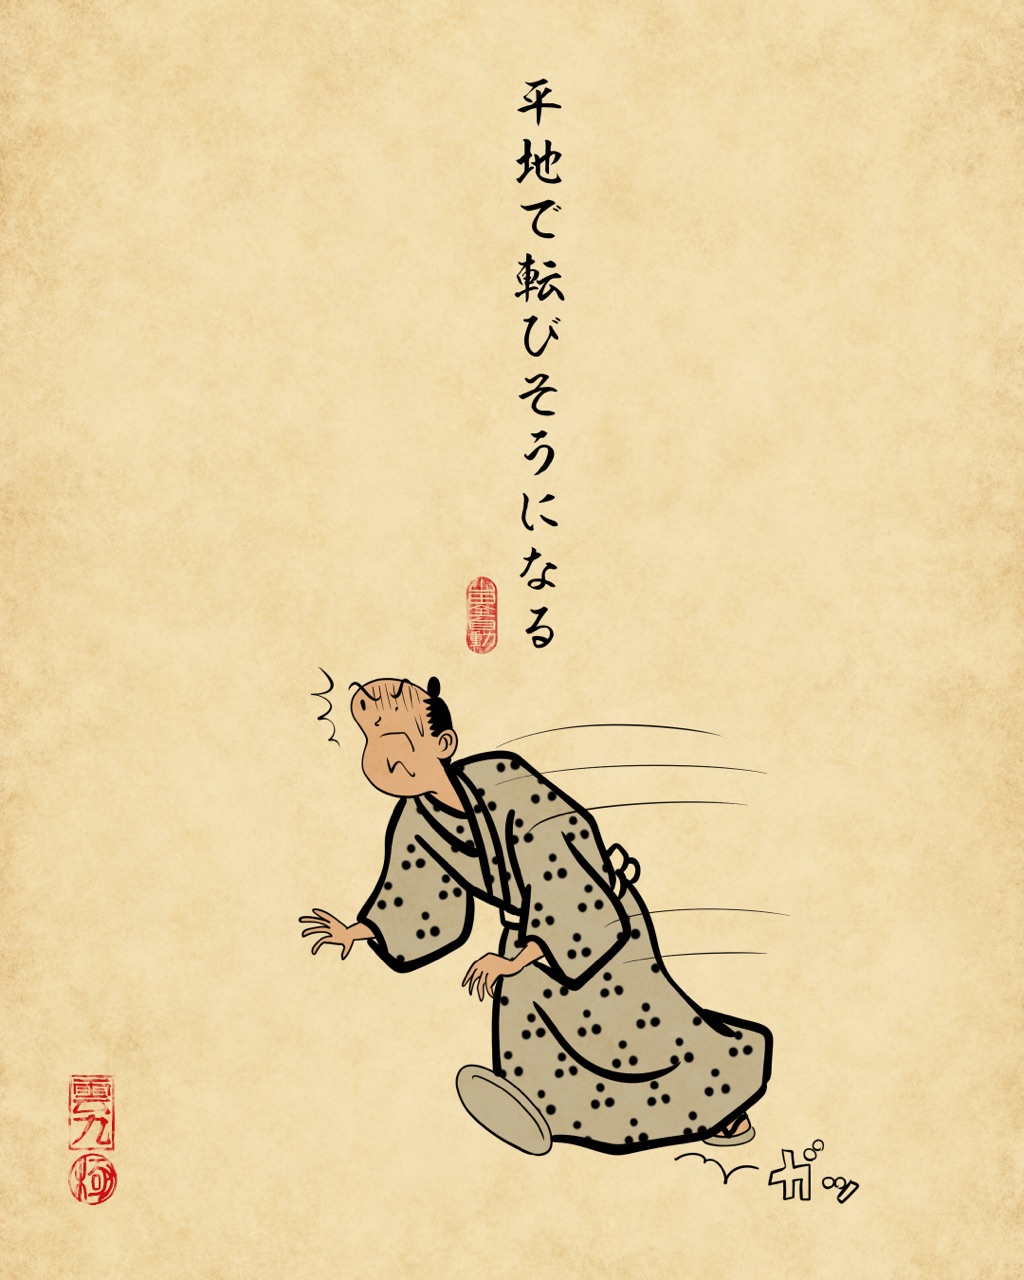 平地で転びそうになる
ガッ